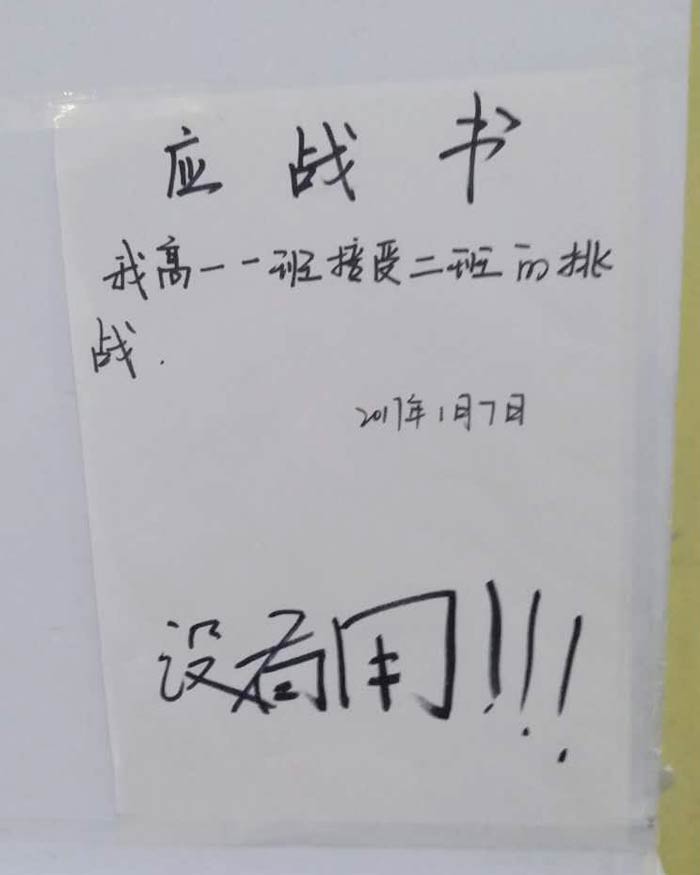 应战书
我高一一班接受二班的挑
战.
2017年1月7日
没有用!!!